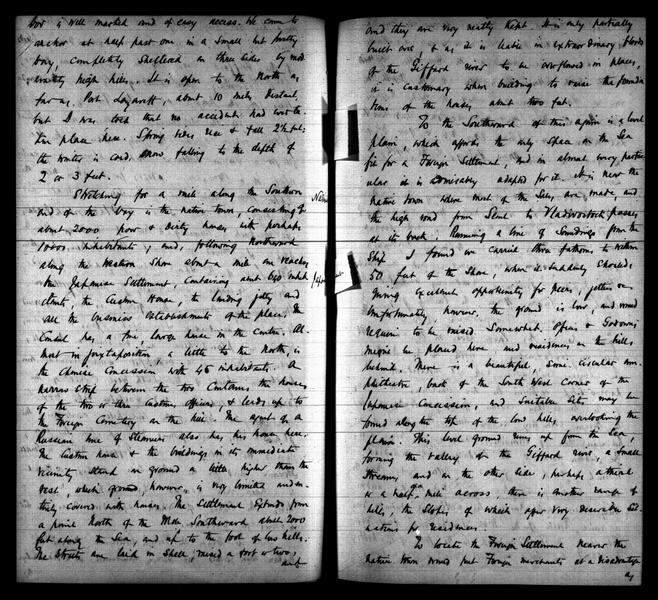 bor is well marked and of easy access. We came to
anchor at half past one in a small but pretty
bay, completely sheltered on three sides by mod-
erately high hills. It is open to the North as
far as Port Lazareff, about 10 miles distant,
but I was told that no accident had ever ta-
ken place here. Spring tides rise & fall 2½ ft;
the winter is cold, snow falling to the depth of
2 or 3 feet.
Stretching for a mile along the Southern
end of the bay is the native town, consisting of
about 2000 poor & dirty houses with perhaps
10000 inhabitants; and, following Northward
along the Western Shore about a mile one reaches
the Japanese Settlement, containing about 650 inhab-
itants, the Custom House, the landing jetty and
all the business establishments of the place. The
Consul has a fine, large house in the centre. Al-
most in juxtaposition, a little to the North, is
the Chinese Concession with 45 inhabitants. A
narrow strip between the two contains the houses
of the two or three Customs officers, & leads up to
the Foreign Cemetery on the hill. The agent of a
Russian line of Steamers also has his house here.
The Custom house & the buildings in its immediate
vicinity stand on ground a little higher than the
rest, which ground, however, is very limited and en-
tirely covered with houses. The Settlement extends from
a point North of the Mole Southward about 2000
feet along the Sea, and up to the foot of low hills.
The Streets are laid in Shell, raised a foot or two,
and
and they are very neatly kept. It is only partially
built over, & as it is liable in extraordinary floods
of the Giffard river to be overflowed in places,
it is customary when building to raise the founda-
tions of the houses about two feet.
To the Southward of this again is a level
plain, which affords the only space on the Sea
fit for a Foreign Settlement, and in almost every partic-
ular it is admirably adapted for it. It is near the
native town where most of the Sales are made and
the high road from Seoul to Vladivostock passes
at its back. Running a line of Soundings from the
Ship I found we carried three fathoms to within
50 feet of the Shore, where it suddenly Shoaled,
giving excellent opportunity for piers, jetties &c.
Unfortunately, however, the ground is low, and would
require to be raised somewhat. Offices & Godowns
might be placed here and residences on the hills
behind. There is a beautiful, semi-circular am-
phitheatre, back of the South West Corner of the
Japanese Concession, and suitable sites may be
found along the top of the low hills, overlooking the
plain. This level ground runs up from the Sea,
forming the valley of the Giffard river, a small
stream, and on the other side, perhaps a third
or a half mile across, there is another range of
hills, the slopes of which offer very desirable sit-
uations for residences.
To locate the Foreign Settlement nearer the
native town would put Foreign merchants at a disadvantage